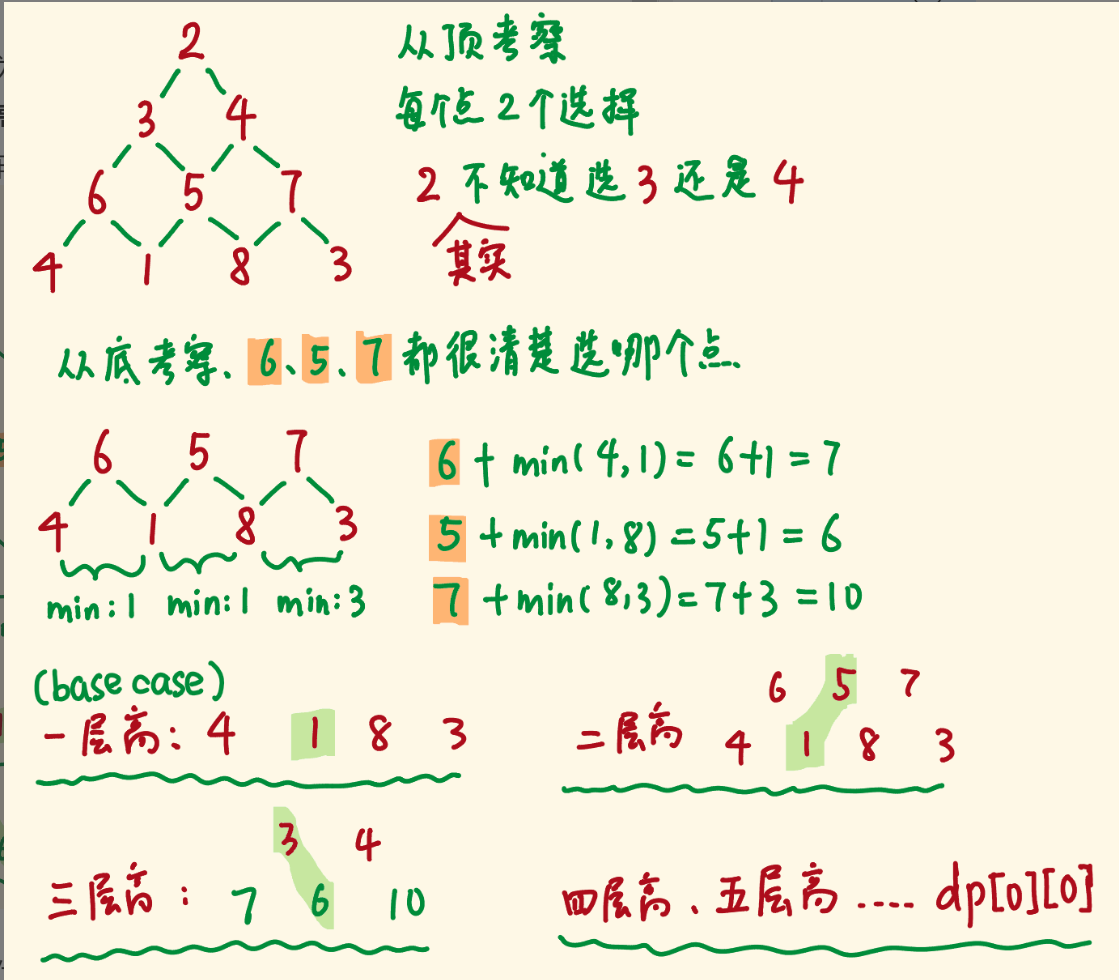 2
3 4
6 5 7
4 1 8 3
从顶考察
每个点2个选择
2不知道选3还是4
其实
从底考察、6、5、7都很清楚选哪个点.
6 5 7
4 1 8 3
min:1 min:1 min:3
6+min(4,1)=6+1=7
5+min(1,8)=5+1=6
7+min(8,3)=7+3=10
(base case)
一层高: 4 1 8 3
6 5 7
二层高 4 1 8 3
3 4
三层高: 7 6 10
四层高、五层高.... dp[0][0]